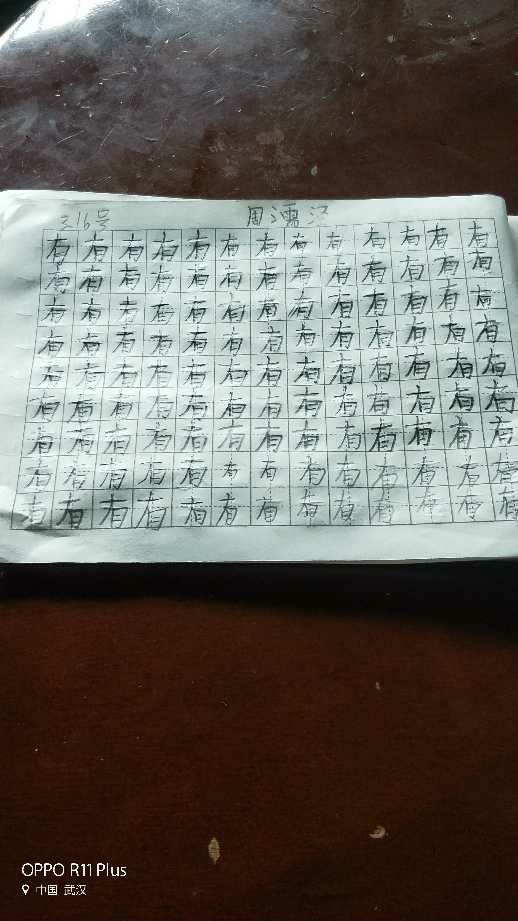 3.16号 周
有有有有有有有有有有有有有
有有有有有有有有有有有有有
有有有有有有有有有有有有有
有有有有有有有有有有有有有
有有有有有有有有有有有有有
有有有有有有有有有有有有有
有有有有有有有有有有有有有
有有有有有有有有有有有有有
有有有有有有有有有有有有有
OPPO R11 Plus
中国 武汉